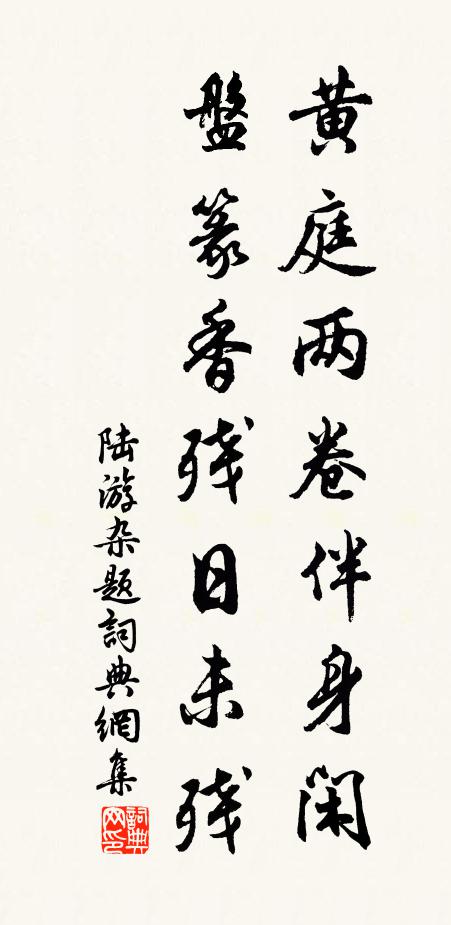 黄庭两卷伴身闲
盤篆香残日未残
陆游杂题詞典網集
詞典网印